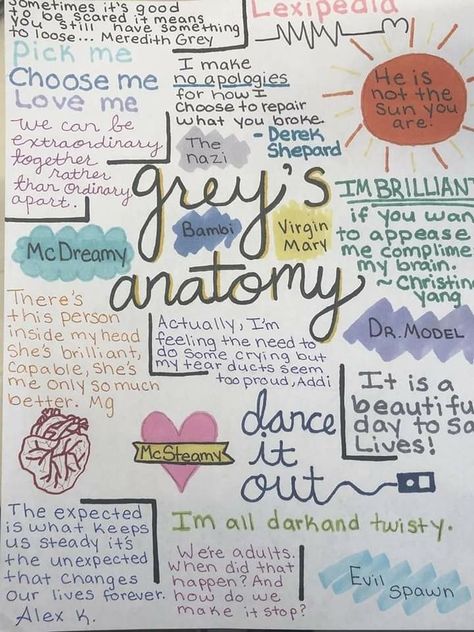 Sometimes it's good
you be scared it means
you still have something
to loose... Meredith Grey
Lexipedia
Pick me
Choose me
Love me
I make
no apologies
for how I
choose to repair
what you broke.
- Derek
Shepard
He is
not the
sun you
are.
We can be
extraordinary
together rather
than ordinary
apart.
The
nazi
grey's
anatomy
McDreamy
Bambi
Virgin
Mary
IM BRILLIANT
if you wan
to appease
me complime
my brain.
~ Christina
yang
There's
this person
inside my head
She's brilliant,
capable, she's
me only so much
better. Mg
Actually, I'm
feeling the need to
do some crying but
my tear ducts seem
too proud, Addi
DR. MODEL
It is a
beautifu
day to sa
Lives!
McSteamy
dance
it
out
The expected
is what keeps
us steady it's
the unexpected
that changes
our lives forever.
Alex K.
I'm all dark and twisty.
We're adults.
When did that
happen? And
how do we
make it stop?
Evil
Spawn